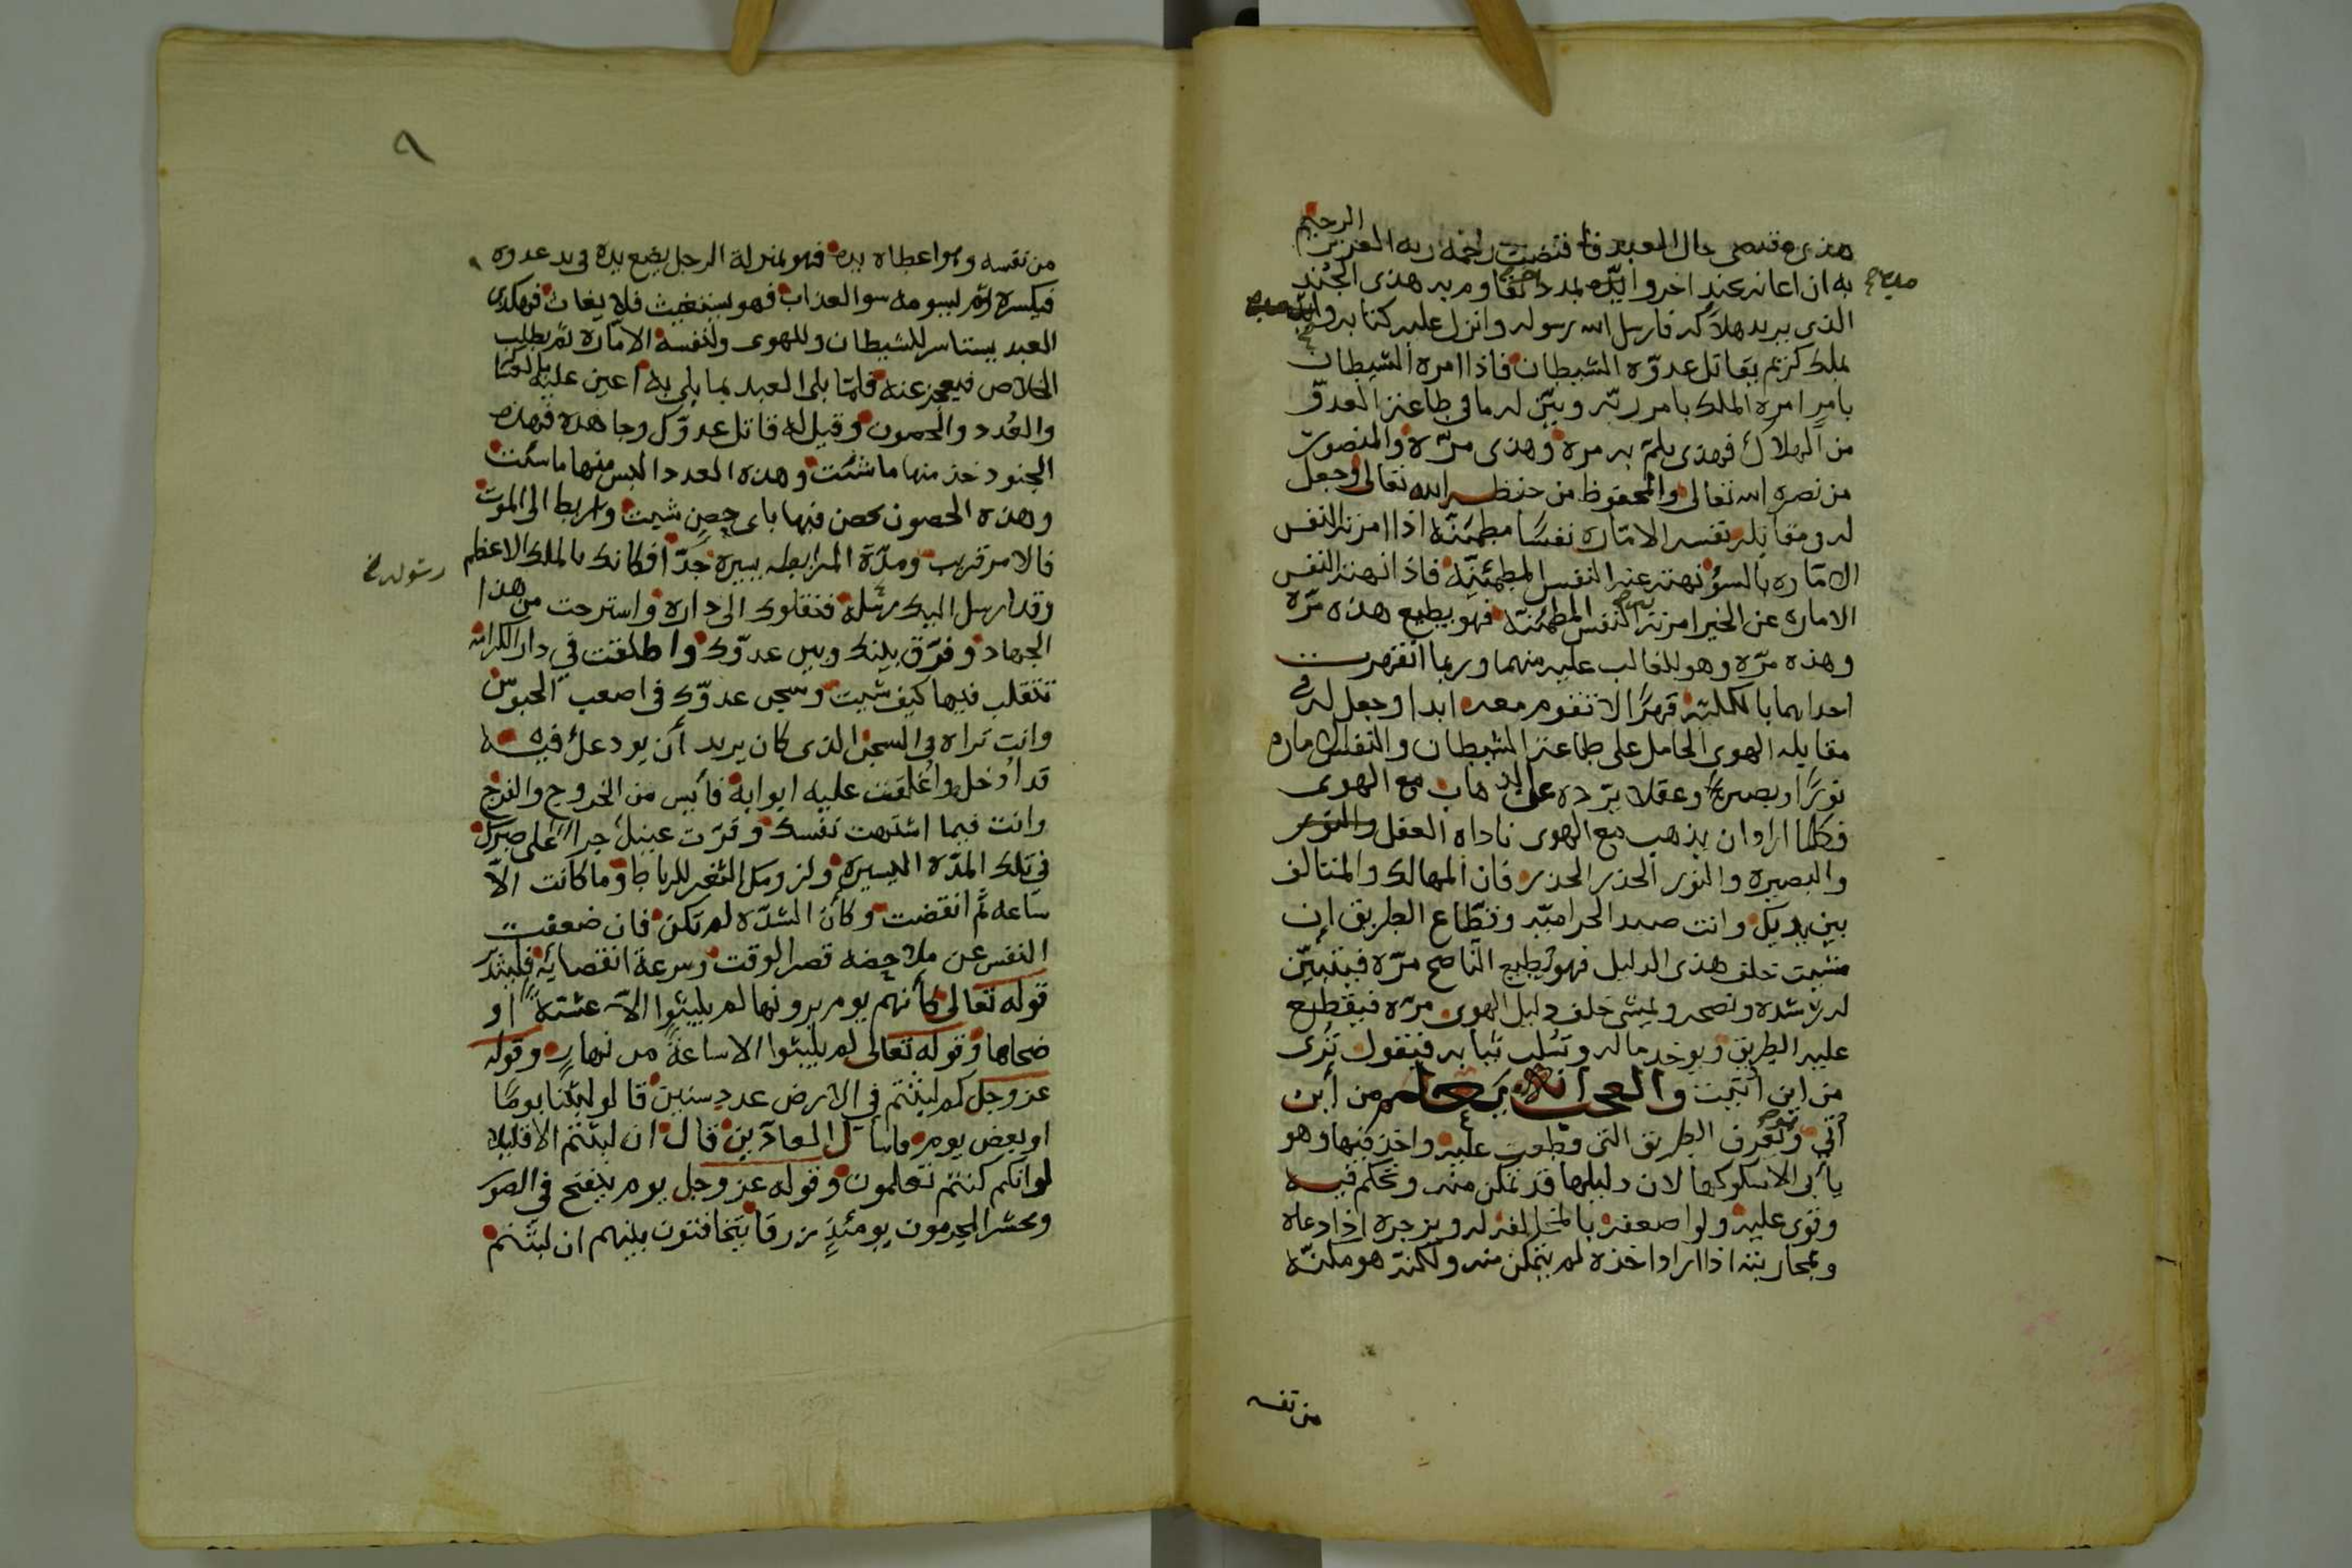 هذى مقتضى حال العبد فاقتضت رحمه ربه العزيز الرحيم
به ان اعانه بجند اخر وايّده بمدد اخر يقاوم به هذى الجُند
الذى يريد هلاكه فارسل الله رسوله وانزل عليه كتابه وايّده
بملك كريم يقاتل عدوّه الشيطان فاذا امره الشيطان
بامرٍ امره الملك بامر ربّه وبيّن له ما فى طاعة العدوّ
من الهلاك فهذى يلمّ به مرة وهذى مرّة والمنصور
من نصره الله تعالى والمحفوظ من حفظه الله تعالى وجعل
له مقابلة نفسه الامّارة نفسًا مطمئنّة اذا امرته النفس
الامّاره بالسوء نهته عنه النفس المطمئنّة فاذا نهته النفس
الاماره عن الخير امرته به النفس المطمئنّة فهو يطيع هذه مرّه
وهذه مرّه وهو للغالب عليه منهما وربما انقهرت
احداهما بالكليّة قهرًا لا تقوم معه ابدا وجعل له فى
مقابله الهوى الحامل على طاعة الشيطان والنفس الاماره
نورًا وبصيرةً وعقلا يردّه عن الذهاب مع الهوى
فكلما اراد ان يذهب مع الهوى ناداه العقل
والبصيره والنور الحذر الحذر فان المهالك والمتالف
بين يديك وانت صيد الحراميّه وقطّاع الطريق إن
مشيت خلف هذى الدليل فهو يطيع الناصح مرّه فيتبيّن
له رشده ونصحه ويمشى خلف دليل الهوى مرّه فيقطع
عليه الطريق ويوخذ ماله وتُسلب ثيابه فيقول تُرى
من اين اُتيت والعجب انه يعلم من أين
اُتي ويعرف الطريق التى قطعت عليه واخذ فيها وهو
يأبى الا سلوكها لان دليلها قد تمكن منه وتحكم فيه
وقوى عليه ولو اضعفه بالمخالفه له وبزجره اذا دعاه
وبمحاربته اذا اراد اخذه لم يتمكن منه ولكنّه هو مكنّه
من نفسه
٩
من نفسه وهو اعطاه يده فهو بمنزلة الرجل يضع يده فى يد عدوه
فيكسره ثم يسومه سو العذاب فهو يستغيث فلا يغاث فهكذى
العبد يستاسر للشيطان وللهوى ولنفسه الامّاره ثم يطلب
الخلاص فيعجز عنه فلمّا بلى العبد بما بلى به اعين عليه بالعسا
والعُدد والحصون وقيل له قاتل عدوّك وجاهده فهذه
الجنود خذ منها ما شئت وهذه العدد البس منها ما شئت
وهذه الحصون تحصن فيها باى حصن شيت ورابط الى الموت
فالامر قريب ومدّة المرابطه يسيرة جدّا فكانك بالملك الاعظم
وقد ارسل اليك رسله فنقلوك الى داره واسترحت من هذا
رسوله خ
الجهاد وفرّق بينك وبين عدوّك واطلقت فى دار الكرامه
تتقلب فيها كيف شيت وسجن عدوّك فى اصعب الحبوس
وانت تراه فى السجن الذى كان يريد أن يودعك فيه
قد اُدخل واُغلقت عليه ابوابه فأيس من الخروج والفرج
وانت فيما اشتهت نفسك وقرّت عينك جزاءً على صبرك
فى تلك المدّه اليسيره ولزومك الثغر للرباط وما كانت الّا
ساعه ثم انقضت وكأن الشدّه لم تكن فان ضعفت
النفس عن ملاحضه قصر الوقت وسرعة انقضايه فليتدبّر
قوله تعالى كأنهم يوم يرونها لم يلبثوا الّا عشيّة او
ضحاها وقوله تعالى لم يلبثوا الا ساعةً من نهار وقوله
عز وجل كم لبثتم فى الارض عدد سنين قالو لبثنا يومًا
او بعض يوم فاسال العادّين قال ان لبثتم الا قليلا
لو انكم كنتم تعلمون وقوله عز وجل يوم ينفخ فى الصور
ونحشر المجرمون يومئذٍ زرقا يتخافتون بينهم ان لبثتم